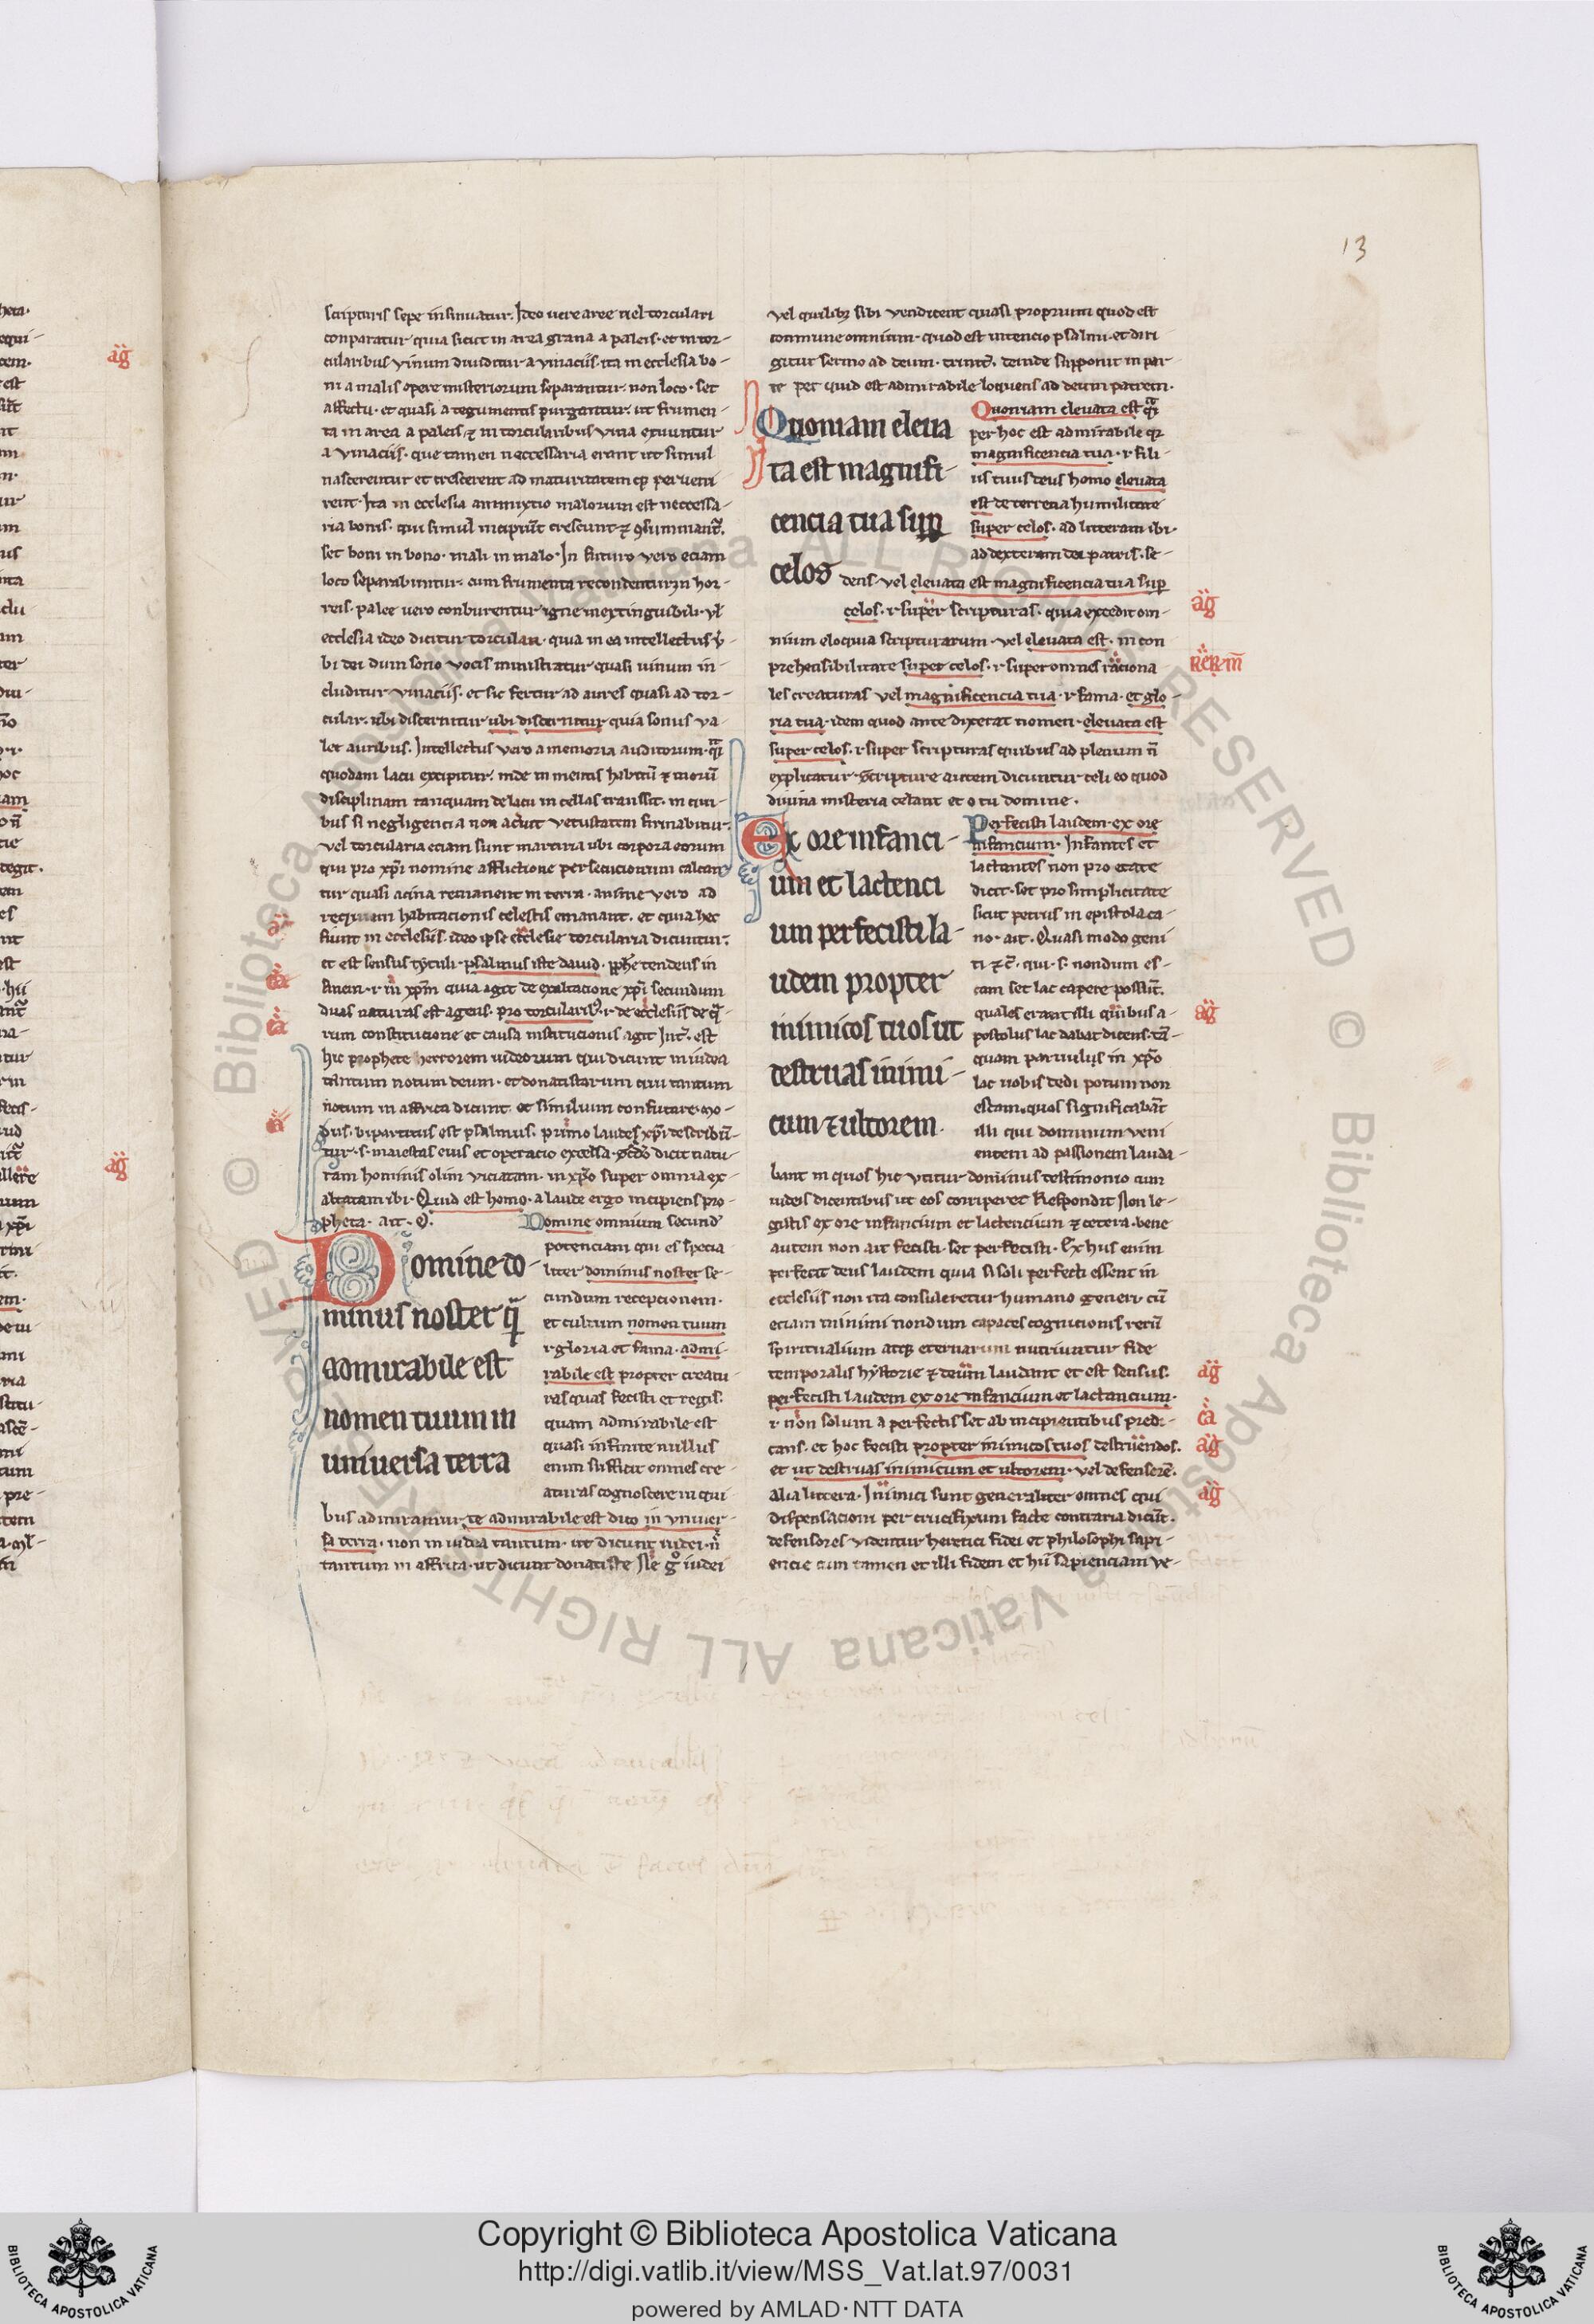 13
scripturis sepe insinuatur. Ideo uere aree uel torculari
conparatur quia sicut in area grana a paleis. et in tor-
cularibus vinum diuiditur a vinaciis. ita in ecclesia bo-
ni a malis opere misteriorum separantur. non loco. set
affectu. et quasi a tegumentis purgantur. ut frumen-
ta in area a paleis. ⁊ in torcularibus vina exuuntur
a vinaciis. que tamen neccessaria erant ut simul
nascerentur et crescerent ad maturitatem perueni
rent. Ita in ecclesia ammixtio malorum est neccessa-
ria bonis. qui simul incipiūt crescunt ⁊ ꝯsummant̃.
set boni in bono. mali in malo. In futuro vero eciam
loco separabuntur. cum frumenta recondentur in hor-
reis. palee uero conburentur igne inextinguibili. vl̃
ecclesia ideo dicitur torcular. quia in ea intellectus v̾-
bi dei dum sono vocis ministratur quasi uinum in-
cluditur vinaciis. et sic fertur ad aures quasi ad tor-
cular. ubi discernitur ubi discernitur quia sonus va-
let auribus. Intellectus vero a memoria auditorum.
quodam lacu excipitur. inde in mentis habitū ⁊ morū
disciplinam tanquam de lacu in cellas transsit. in qui-
bus si negligencia non acuit vetustatem firmabitur.
vel torcularia eciam sunt martiria ubi corpora eorum
qui pro xp̃i nomine afflictione persecucionum calcan
tur quasi acina remanent in terra. anime vero ad
requiem habitacionis celestis emanant. et quia hec
fiunt in ecclesiis. ideo ipse ecclesie torcularia dicuntur.
et est sensus tytuli. psalmus iste dauid. ꝓphe tendens in
finem. ı. in xp̃m quia agit de exaltacione xp̃i secundum
duas naturas est agens. pro torcularib⁹. ı. de ecclesiis de q̄
rum constitucione et causa institucionis agit Int̃. est
hic prophete herrorem iudeorum qui dicunt in iudea
tantum notum deum. et donatistarum qui tantum
notum in affrica dicunt. et similium confutare. mo-
dus. bipartitus est psalmus. primo laudes xp̃i describū-
tur. s. maiestas eius et operacio excelsa. dicit natu-
ram hominis olim viciatam. in xp̃o super omnia ex-
altatam ibi. Quid est homo. a laude ergo incipiens pro-
pheta. ait. D.
Domine omnium secund
potenciam qui es specia
liter dominus noster se-
cundum recepcionem.
et cultum nomen tuum
ı. gloria et fama. admi-
rabile est propter creatu-
ras quas fecisti et regis.
quam admirabile est
quasi infinite nullus
enim sufficit omnes cre-
aturas cognoscere in qui-
Domine do-
minus noster q̃
admirabile est
nomen tuum in
uniuersa terra
bus admiramur te admirabile est dico in vniuer-
sa terra. non in iudea tantum. ut dicunt iudei. ñ
tantum in affrica. ut dicunt donatiste. g° iudei
vel quilibꝫ sibi vendicent quasi proprium quod est
commune omnium. quod est intencio psalmi. et diri
gitur sermo ad deum. deinde supponit in par-
te per quid est admirabile loquens ad deum patrem.
Quoniam eleua
ta est magnifi-
cencia tua sup̱
celos
Quoniam eleuata est
per hoc est admirabile
magnificencia tua. ı. fili-
us tuus deus homo eleuata
est de terrena humilitate
super celos. ad litteram ibi.
ad dexteram dei patris. se-
dens. vel eleuata est magnificencia tua sup̱
celos. ı. super scripturas. quia excedit om-
nium eloquia scripturarum. vel eleuata est. in con
prehensibilitate super celos. ı. super omnes raciona
les creaturas vel magnificencia tua. ı. fama. et glo-
ria tua. idem quod ante dixerat nomen. eleuata est
super celos. ı. super scripturas quibus ad plenum ñ
explicatur. Scripture autem dicuntur celi eo quod
diuina misteria celant et o tu domine.
Ex ore infanci-
um et lactenci
um perfecisti la-
udem propter
inimicos tuos ut
destruas inimi-
cum ⁊ ultorem.
Perfecisti laudem. ex ore
infancium. Infantes et
lactantes non pro etate
dicit. set pro simplicitate
sicut petrus in epistola ca-
no. ait. Quasi modo geni
ti ⁊ c̃. qui. s. nondum es-
cam set lac capere possūt.
quales erant illi quibus a-
postolus lac dabat dicens. tā-
quam paruulus in xp̃o
lac uobis dedi potum non
escam. quos significabāt
illi qui dominum veni
entem ad passionem lauda-
bant in quos hic vtitur dominus testimonio cum
iudeis dicentibus ut eos corriperet Respondit Non le-
gistis ex ore infancium et lactencium ⁊ cetera. bene
autem non ait fecisti. set perfecisti. Ex hus enim
perfecit deus laudem quia si soli perfecti essent in
ecclesiis non ita consuleretur humano generi. cū
eciam minimi nondum capaces cognicionis rerū
spiritualium atqꝫ eternarum nutriuntur fide
temporalis hystorie ⁊ deum laudant et est sensus.
perfecisti laudem ex ore infancium et lactancium.
ı. non solum a perfectis set ab incipientibus predi-
cans. et hoc fecisti propter inimicos tuos destruendos.
et ut destruas inimicum et ultorem. vel defensorē.
alia littera. Inimici sunt generaliter omnes qui
dispensacioni per crucifixum facte contraria dicūt.
defensores videntur heretici fidei et philosophi sapi-
encie cum tamen et illi fidem et hii sapienciam ve-
© Biblioteca Apostolica Vaticana ALL RIGHTS RESERVED © Biblioteca Apostolica Vaticana ALL RIGHTS RESERVED
Copyright © Biblioteca Apostolica Vaticana
http://digi.vatlib.it/view/MSS_Vat.lat.97/0031
powered by AMLAD·NTT DATA
BIBLIOTECA APOSTOLICA VATICANA
BIBLIOTECA APOSTOLICA VATICANA